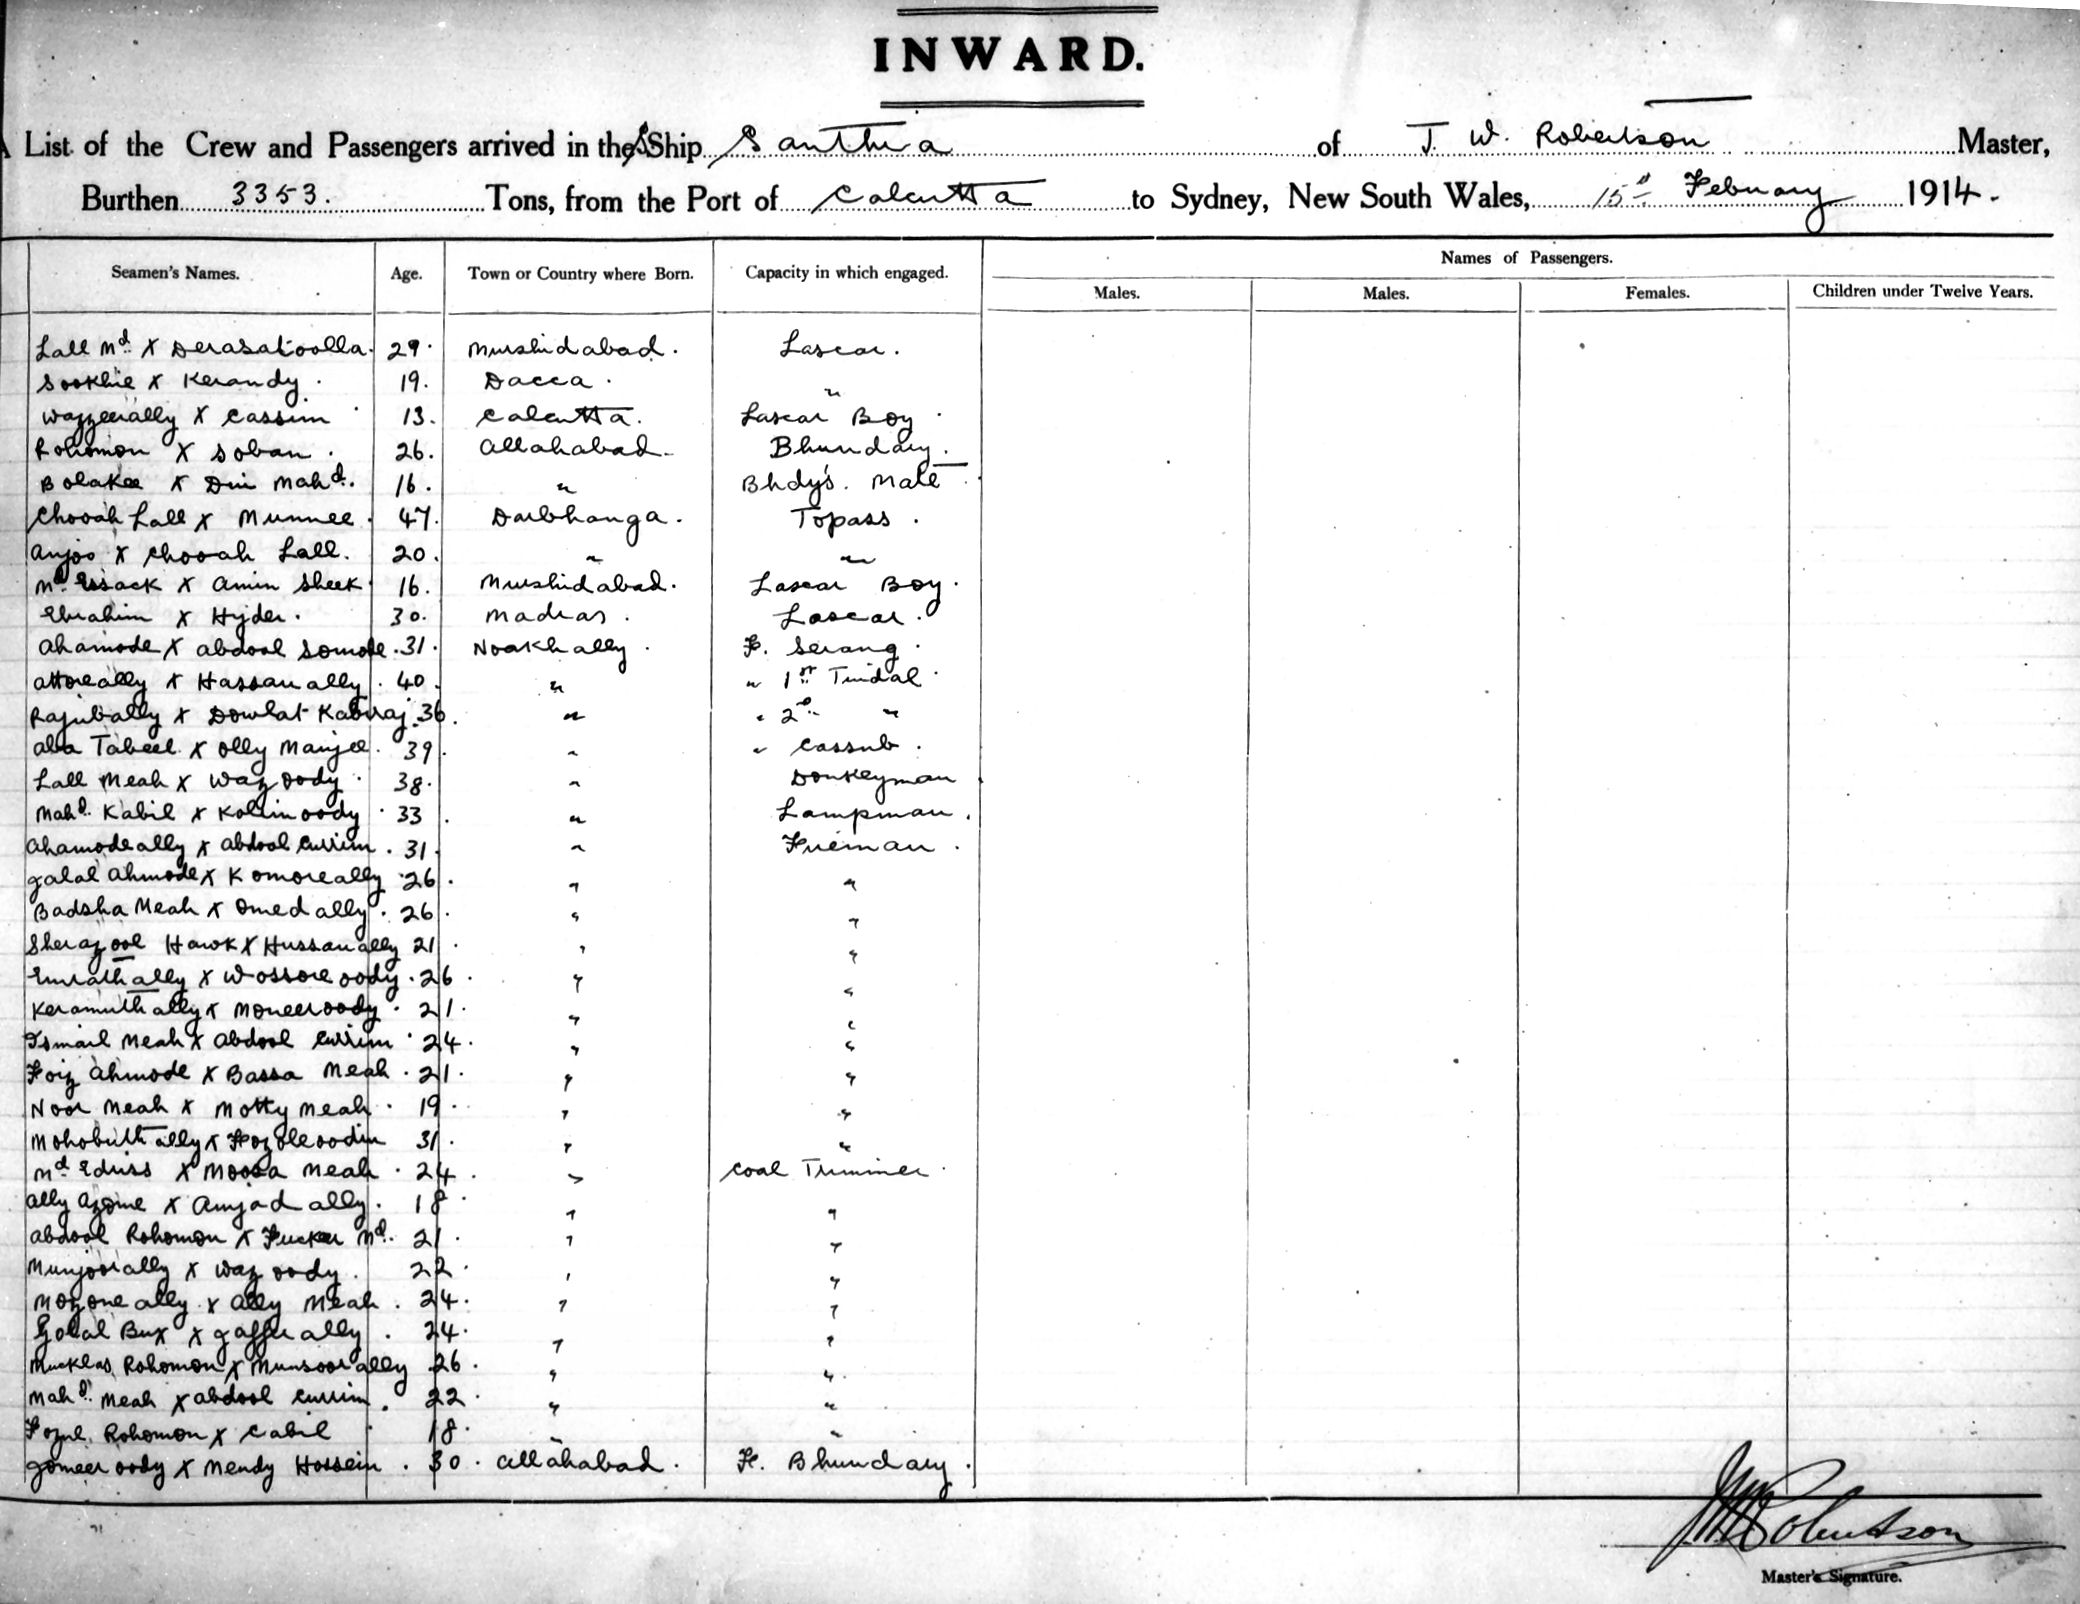 INWARD.
A List of the Crew and Passengers arrived in the SShip Santhia of J. W. Robertson Master,
Burthen 3353. Tons, from the Port of Calcutta to Sydney, New South Wales, 15th February 1914.
Names of Passengers.
Seamen's Names. Age. Town or Country where Born. Capacity in which engaged. Males. Males. Females. Children under Twelve Years.
Lall Md X Derasatoolla. 29. Murshidabad. Lascar.
Sookhie X Kerandy. 19. Dacca. "
Wazzeerally X Cassim 13. Calcutta. Lascar Boy.
Rohomon X Soban. 26. Allahabad. Bhundary.
Bolakee X Din Mahd. 16. " Bhdy's. Mate.
Chooah Lall X Munnee. 47. Darbhanga. Topass.
Anjoo X Chooah Lall. 20. " "
Md Essack X Amin Sheek. 16. Murshidabad. Lascar Boy.
Ebrahim X Hyder. 30. Madras. Lascar.
Ahamode X Abdool Somode. 31. Noakhally. F. Serang.
Attoreally X Hassanally. 40. " " 1st Tindal.
Rajubally X Dowlat Kabiraj. 36. " " 2d "
Aba Tabeel X Olly Manjee. 39. " " Cassub.
Lall Meah X Wazoody. 38. " Donkeyman
Mahd. Kabil X Kolimoody. 33. " Lampman.
Ahamodeally X Abdool Currim. 31. " Fireman.
Jalal Ahmode X Komoreally. 26. " "
Badsha Meah X Omedally. 26. " "
Sherazool Hawk X Hussanally 21. " "
Emrathally X Wossoreoody. 26. " "
Keramuthally X Moneeroody. 21. " "
Ismail Meah X Abdool Currim. 24. " "
Foiz Ahmode X Bassa Meah. 21. " "
Noor Meah X Motty Meah. 19. " "
Mohobuthally X Fozoleoodin 31. " "
Md Edriss X Moosa Meah. 24. " Coal Trimmer.
Ally Azome X Amjadally. 18. " "
Abdool Rohomon X Fucker Md. 21. " "
Munjoorally X Wazoody. 22. " "
Mozoneally X Ally Meah. 24. " "
Golal Bux X Gafferally. 24. " "
Mucklas Rohomon X Munsoorally 26. " "
Mahd. Meah X Abdool Currim. 22. " "
Fozul Rohomon X Cabil 18. " "
Jomeeroody X Mendy Hossein. 30. Allahabad. F. Bhundary.
J W Robertson
Master's Signature.